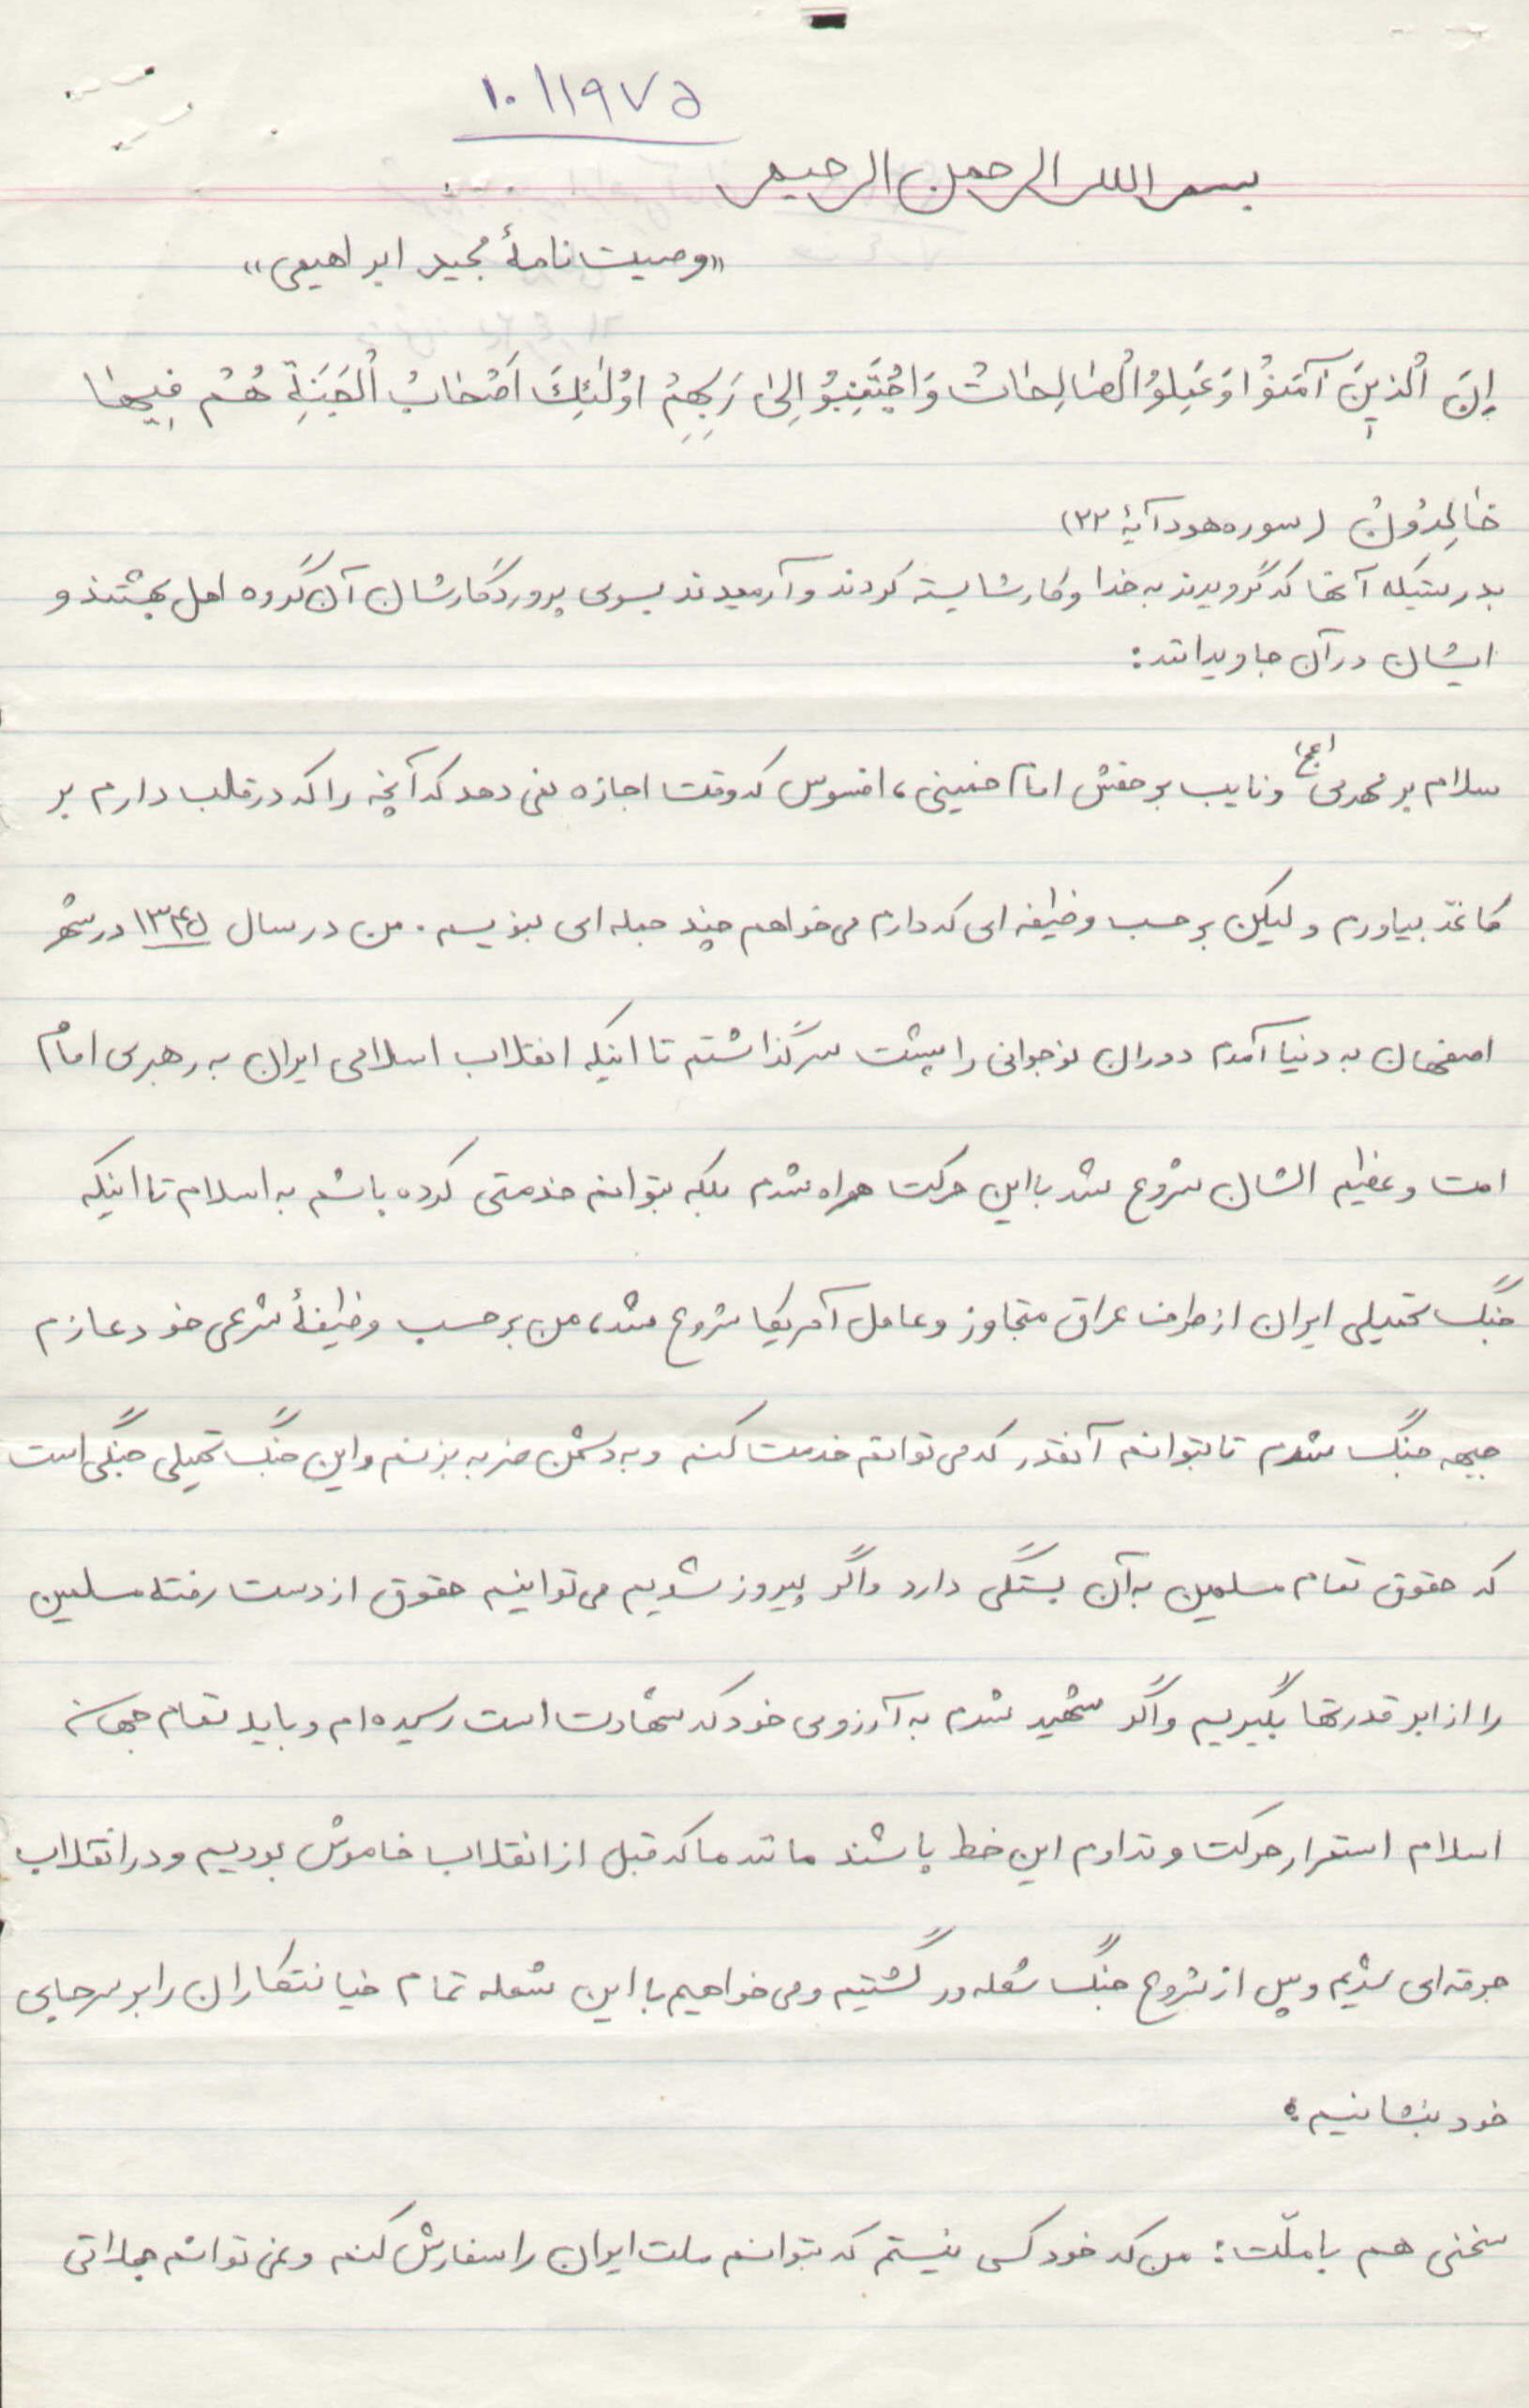 ۱۰۱۱۹۷۵
بسم الله الرحمن الرحیم
«وصیت نامهٔ مجید ابراهیمی»
اِنَّ الَّذینَ آمَنوُا وَ عَمِلوُا الْصّالِحاتْ وَ اَخْبَتُوا اِلیٰ رَبِّهِمْ اوُلٰئِکَ اَصْحابُ الْجَنَةِ هُمْ فیِها
خالِدوُنْ (سوره هود آیهٔ ۲۳)
بدرستیکه آنها که گرویدند به خدا و کار شایسته کردند و آرمیدند بسوی پروردگارشان آن گروه اهل بهشتند و
ایشان در آن جاویدانند:
سلام بر مهدی (عج) و نایب بر حقش امام خمینی، افسوس که وقت اجازه نمی دهد که آنچه را که در قلب دارم بر
کاغذ بیاورم و لیکن بر حسب وظیفه ای که دارم می خواهم چند جمله ای بنویسم. من در سال ۱۳۴۵ در شهر
اصفهان به دنیا آمدم دوران نوجوانی را پشت سر گذاشتم تا اینکه انقلاب اسلامی ایران به رهبری امام
امت و عظیم الشان شروع شد با این حرکت همراه شدم بلکه بتوانم خدمتی کرده باشم به اسلام تا اینکه
جنگ تحمیلی ایران از طرف عراق متجاوز و عامل آمریکا شروع شد، من بر حسب وظیفهٔ شرعی خود عازم
جبهه جنگ شدم تا بتوانم آنقدر که می توانم خدمت کنم و به دشمن ضربه بزنم و این جنگ تحمیلی جنگی است
که حقوق تمام مسلمین به آن بستگی دارد و اگر پیروز شدیم می توانیم حقوق از دست رفتهٔ مسلمین
را از ابر قدرتها بگیریم و اگر شهید شدم به آرزوی خود که شهادت است رسیده ام و باید تمام جهان
اسلام استمرار حرکت و تداوم این خط باشند مانند ما که قبل از انقلاب خاموش بودیم و در انقلاب
جرقه ای شدیم و پس از شروع جنگ شعله ور گشتیم و می خواهیم با این شعله تمام خیانتکاران را بر سر جای
خود بنشانیم.
سخنی هم با ملّت: من که خود کسی نیستم که بتوانم ملت ایران را سفارش کنم و نمی توانم جملاتی